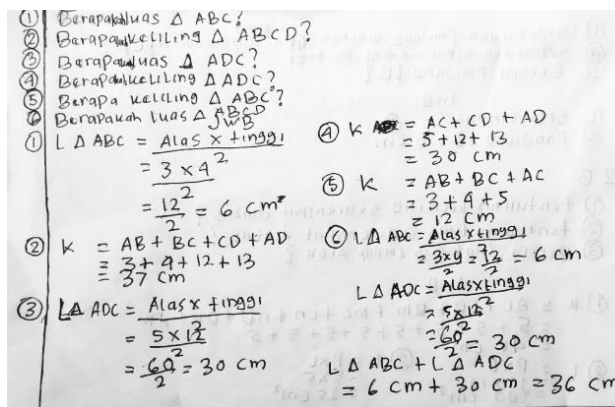 ① Berapakah luas Δ ABC?
② Berapakah keliling Δ ABCD?
③ Berapakah luas Δ ADC?
④ Berapakah keliling Δ ADC?
⑤ Berapa keliling Δ ABC?
⑥ Berapakah luas Δ ABCD
JWB
① L Δ ABC = Alas x tinggi
2
= 3 x 4
2
= 12
2
= 6 cm²
② K = AB + BC + CD + AD
= 3 + 4 + 12 + 13
= 37 cm
③ L Δ ADC = Alas x tinggi
2
= 5 x 12
2
= 60
2
= 30 cm
④ K = AC + CD + AD
= 5 + 12 + 13
= 30 cm
⑤ K = AB + BC + AC
= 3 + 4 + 5
= 12 cm
⑥ L Δ ABC = Alas x tinggi
2
= 3x4 = 12 = 6 cm
2 2
L Δ ADC = Alas x tinggi
2
= 5 x 12
2
= 60
2
= 30 cm
L Δ ABC + L Δ ADC
= 6 cm + 30 cm = 36 cm